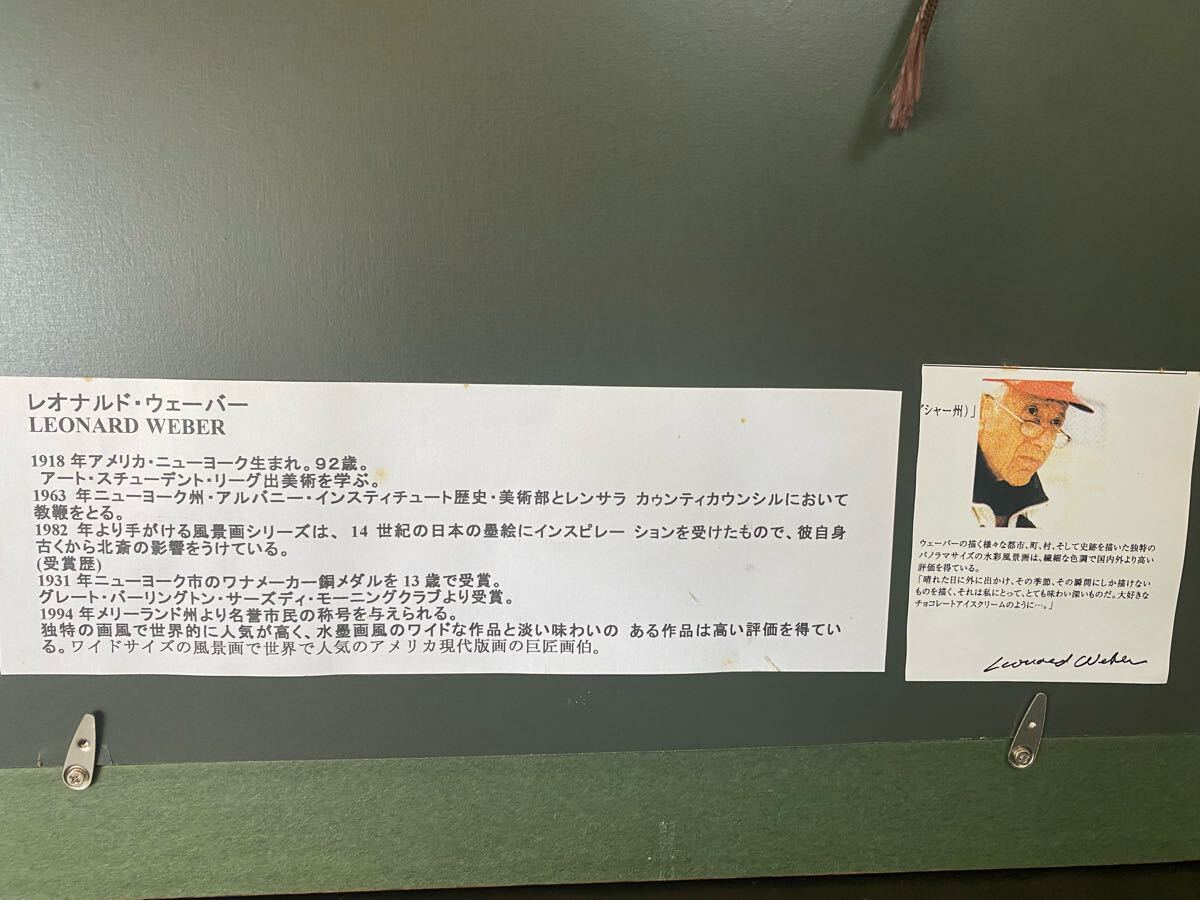 レオナルド・ウェーバー
LEONARD WEBER
1918年アメリカ・ニューヨーク生まれ。92歳。
アート・スチューデント・リーグ出美術を学ぶ。
1963 年ニューヨーク州・アルバニー・インスティチュート歴史・美術部とレンサラ カゥンティカウンシルにおいて
教鞭をとる。
1982 年より手がける風景画シリーズは、 14 世紀の日本の墨絵にインスピレー ションを受けたもので、彼自身
古くから北斎の影響をうけている。
(受賞歴)
1931 年ニューヨーク市のワナメーカー銅メダルを 13 歳で受賞。
グレート・バーリングトン・サーズディ・モーニングクラブより受賞。
1994 年メリーランド州より名誉市民の称号を与えられる。
独特の画風で世界的に人気が高く、水墨画風のワイドな作品と淡い味わいの ある作品は高い評価を得てい
る。ワイドサイズの風景画で世界で人気のアメリカ現代版画の巨匠画伯。
シャー州)」
ウェーバーの描く様々な都市、町、村、そして史跡を描いた独特の
パノラマサイズの水彩風景画は、繊細な色調で国内外より高い
評価を得ている。
「晴れた日に外に出かけ、その季節、その瞬間にしか描けない
ものを描く、それは私にとって、とても味わい深いものだ。大好きな
チョコレートアイスクリームのように…。」
Leonard Weber